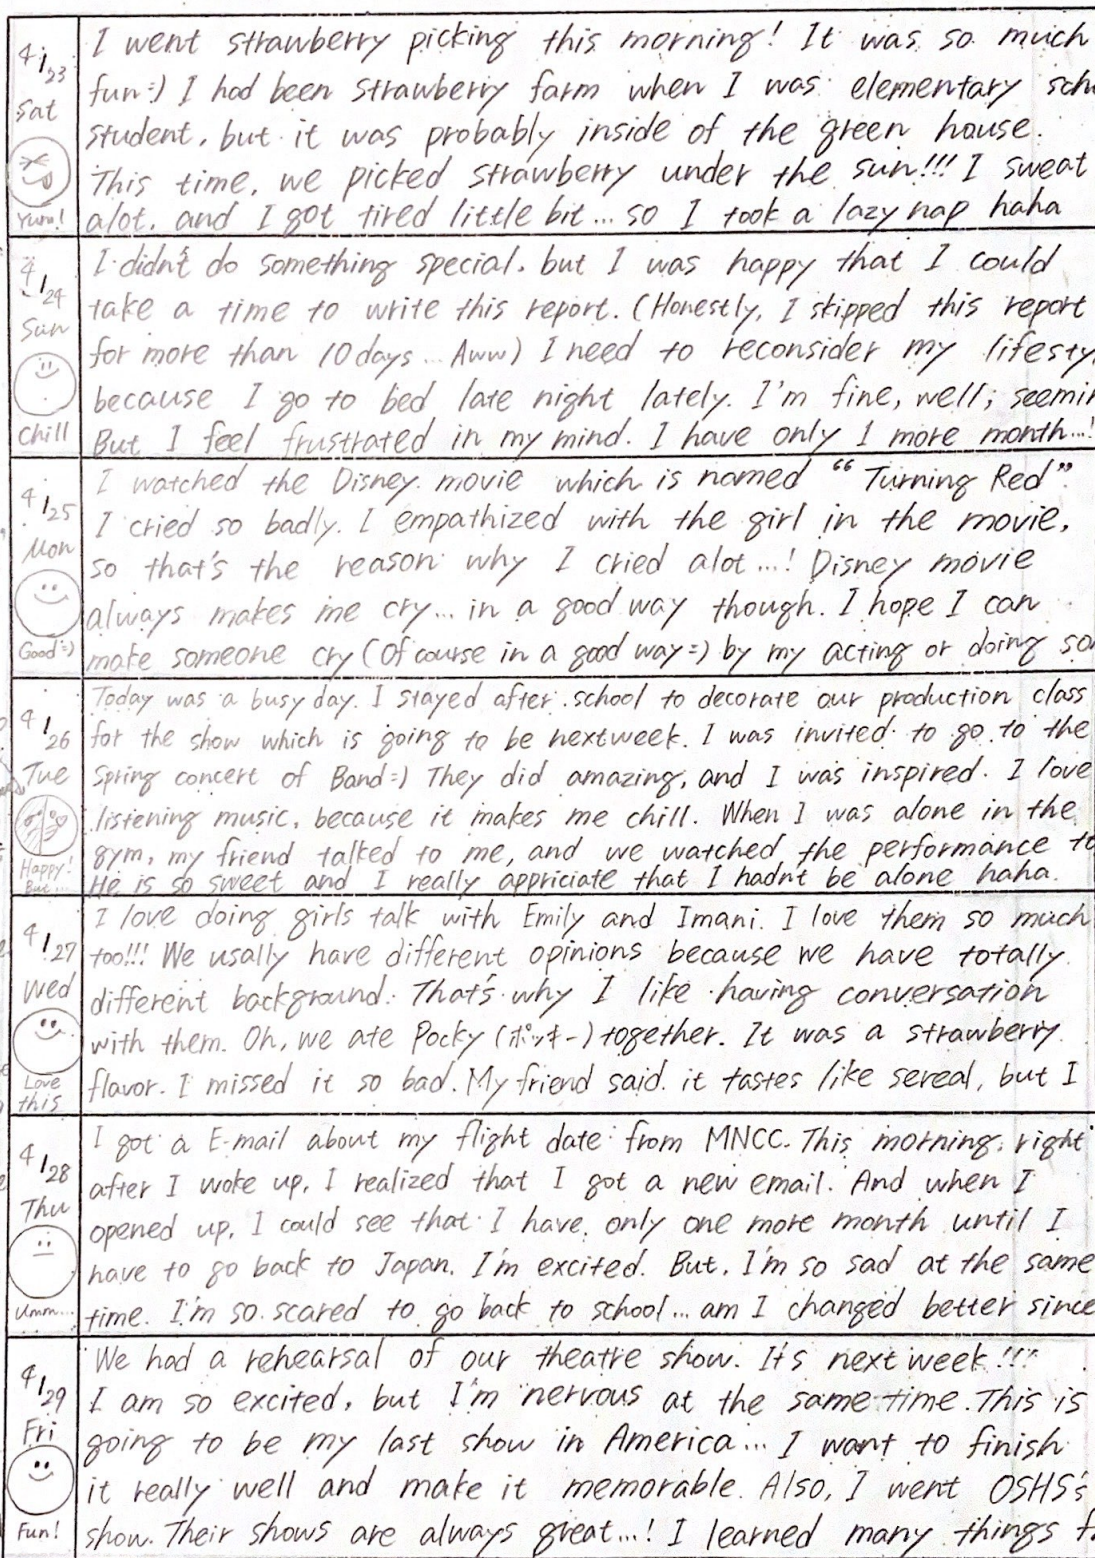 4/23
Sat
Yum!
I went strawberry picking this morning! It was so much
fun=) I had been strawberry farm when I was elementary sch
student, but it was probably inside of the green house.
This time, we picked strawberry under the sun!!! I sweat
alot, and I got tired little bit... so I took a lazy nap haha
4/24
Sun
Chill
I didn't do something special, but I was happy that I could
take a time to write this report. (Honestly, I skipped this report
for more than 10 days... Aww) I need to reconsider my lifesty
because I go to bed late night lately. I'm fine, well; seemin
But I feel frustrated in my mind. I have only 1 more month...!
4/25
Mon
Good=)
I watched the Disney movie which is named "Turning Red".
I cried so badly. I empathized with the girl in the movie,
so that's the reason why I cried alot...! Disney movie
always makes me cry... in a good way though. I hope I can
make someone cry (Of course in a good way=) by my acting or doing so
4/26
Tue
Happy!
But...
Today was a busy day. I stayed after school to decorate our production class
for the show which is going to be nextweek. I was invited to go to the
Spring concert of Band=) They did amazing, and I was inspired. I love
listening music, because it makes me chill. When I was alone in the
gym, my friend talked to me, and we watched the performance to
He is so sweet and I really appriciate that I hadn't be alone haha.
4/27
Wed
Love
this
I love doing girls talk with Emily and Imani. I love them so much
too!!! We usally have different opinions because we have totally
different background. That's why I like having conversation
with them. Oh, we ate Pocky (ポッキー) together. It was a strawberry
flavor. I missed it so bad. My friend said it tastes like sereal, but I
4/28
Thu
Umm...
I got a E-mail about my flight date from MNCC. This morning, right
after I woke up, I realized that I got a new email. And when I
opened up, I could see that I have only one more month until I
have to go back to Japan. I'm excited. But, I'm so sad at the same
time. I'm so scared to go back to school... am I changed better since
4/29
Fri
Fun!
We had a rehearsal of our theatre show. It's next week!!!
I am so excited, but I'm nervous at the same time. This is
going to be my last show in America... I want to finish
it really well and make it memorable. Also, I went OSHS's
show. Their shows are always great...! I learned many things f